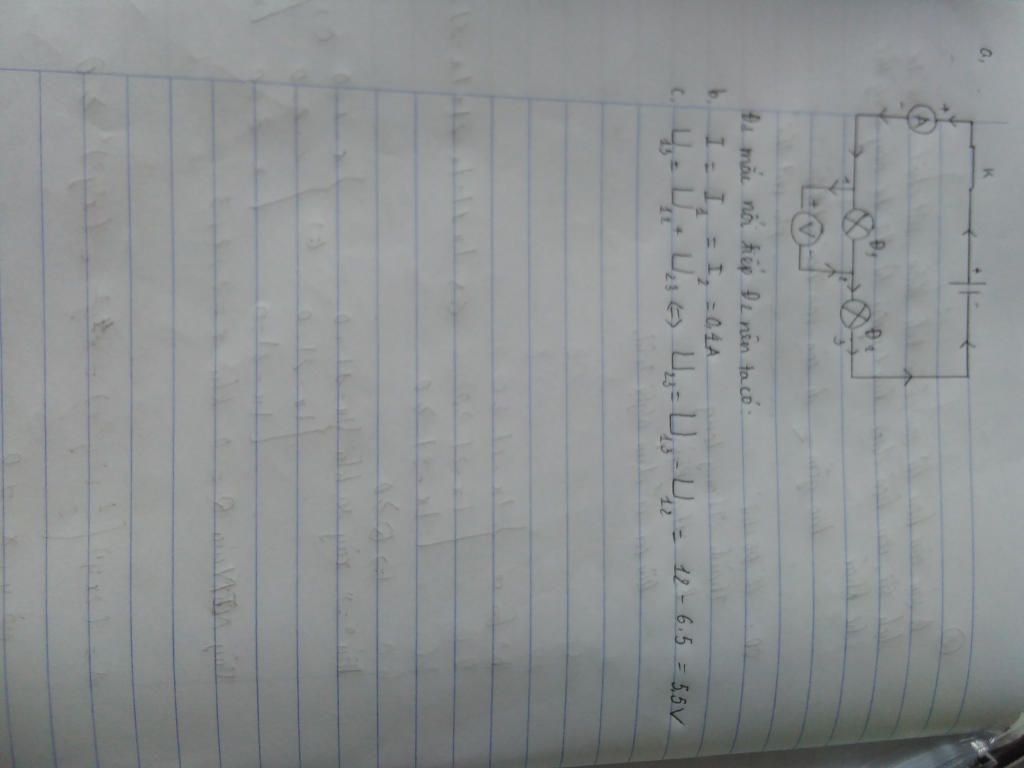 a,
K
+ -
+ A -
Đ1 Đ2
1 2 3
+ V -
Đ1 mắc nối tiếp Đ2 nên ta có:
b. I = I1 = I2 = 0,4A
c. U13 = U12 + U23 (=) U23 = U13 - U12 = 12 - 6.5 = 5,5V